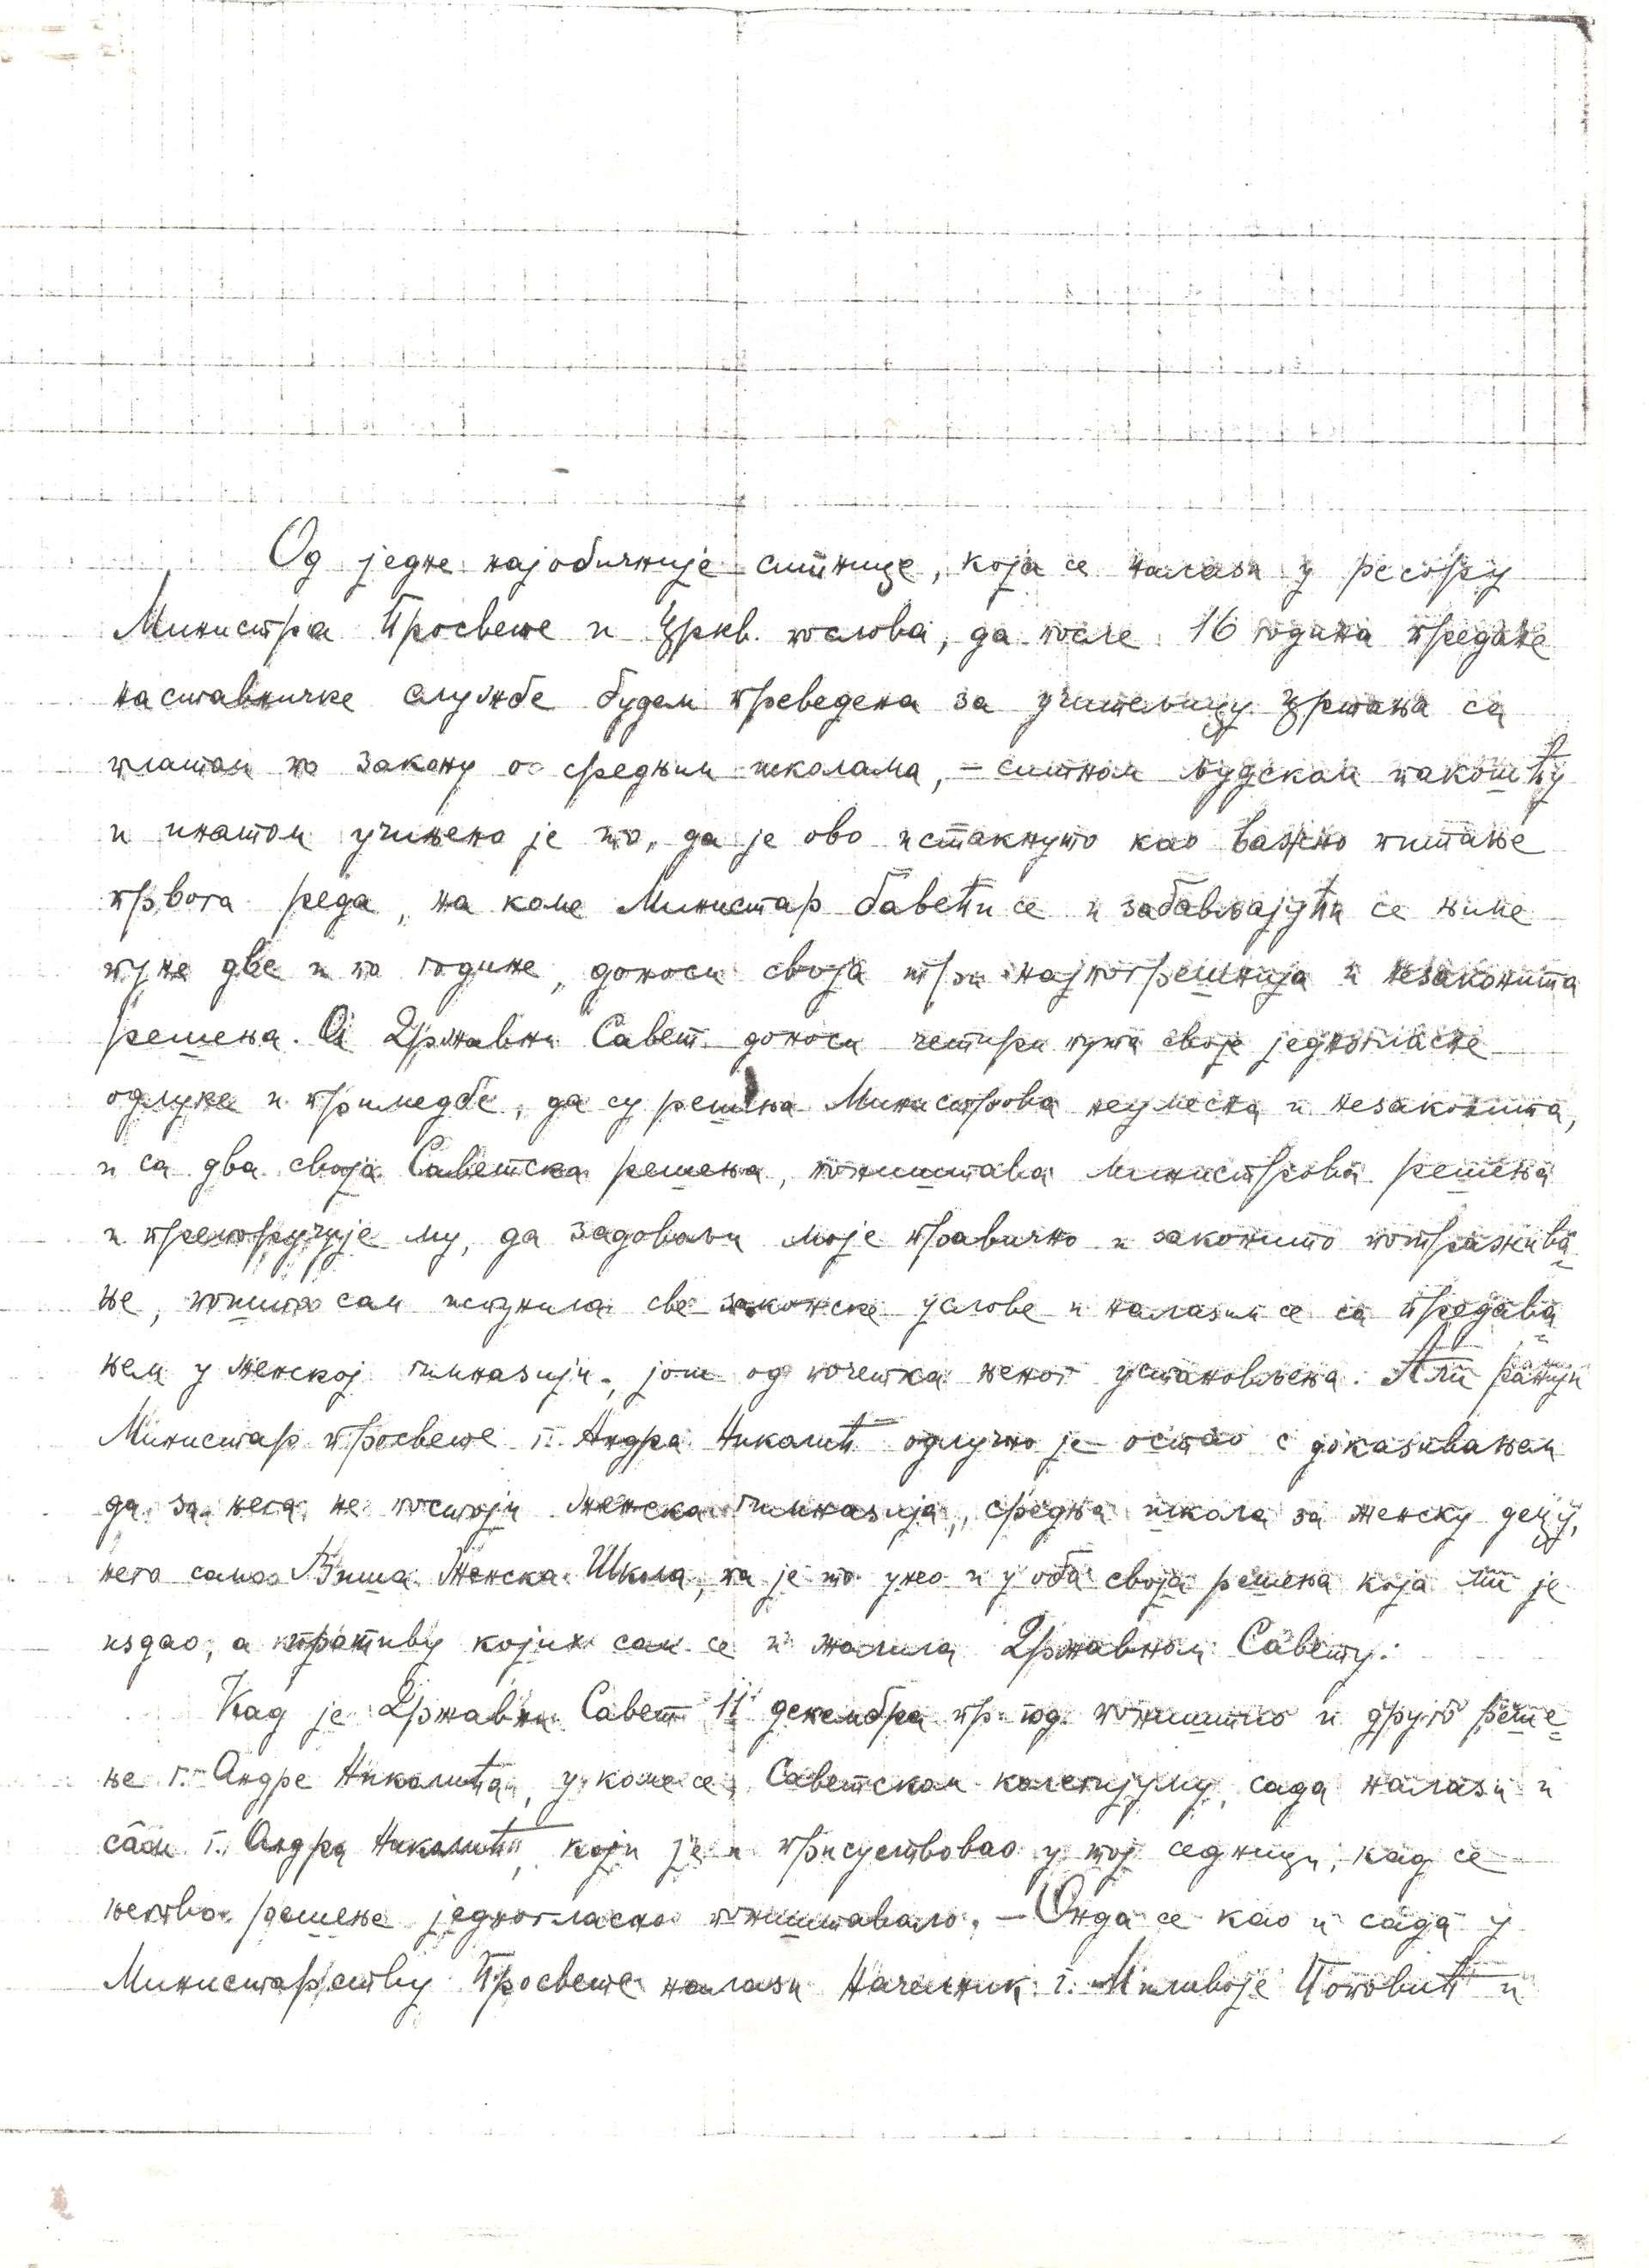 Од једне најобичније ситнице, која се налази у ресору
Министра Просвете и Црkв. послова, да после 16 година предане
наставничке службе будем преведена за учитељицу цртања са
платом по закону о средњим школама, – ситном људском пакошћу
и инатом учињено је то, да је ово истакнуто као важно питање
првога реда, на коме Министар бавећи се и забављајући се њиме
пуне две и по године, доноси своја три најпогрешнија и незаконита
решења. А Државни Савет доноси четири пута своје једногласне
одлуке и примедбе, да су решења Министрова неумесна и незаконита,
и са два своја Саветска решења, поништава министрова решења
и препоручује му, да задовољи моје правично и законито потражива-
ње, пошто сам испунила све законске услове и налазим се са предава-
њем у женској гимназији, још од почетка њеног установљења. Али ранији
Министар просвете г. Андра Николић одлучно је остао с доказивањем
да за њега не постоји женска гимназија, средња школа за женску децу,
него само Виша Женска Школа, па је то унео и у оба своја решења која ми је
издао, а противу којих сам се и жалила Државном Савету.
Кад је Државни Савет 11 декембра пр. год. поништио и друго реше-
ње г. Андре Николића, у коме се, Саветском колегијуму, сада налази и
сам г. Андра Николић, који је и присуствовао у тој седници, кад се
његово решење једногласно поништавало. – Онда се као и сада у
Министарству Просвете налази Начелник г. Миливоје Поповић и